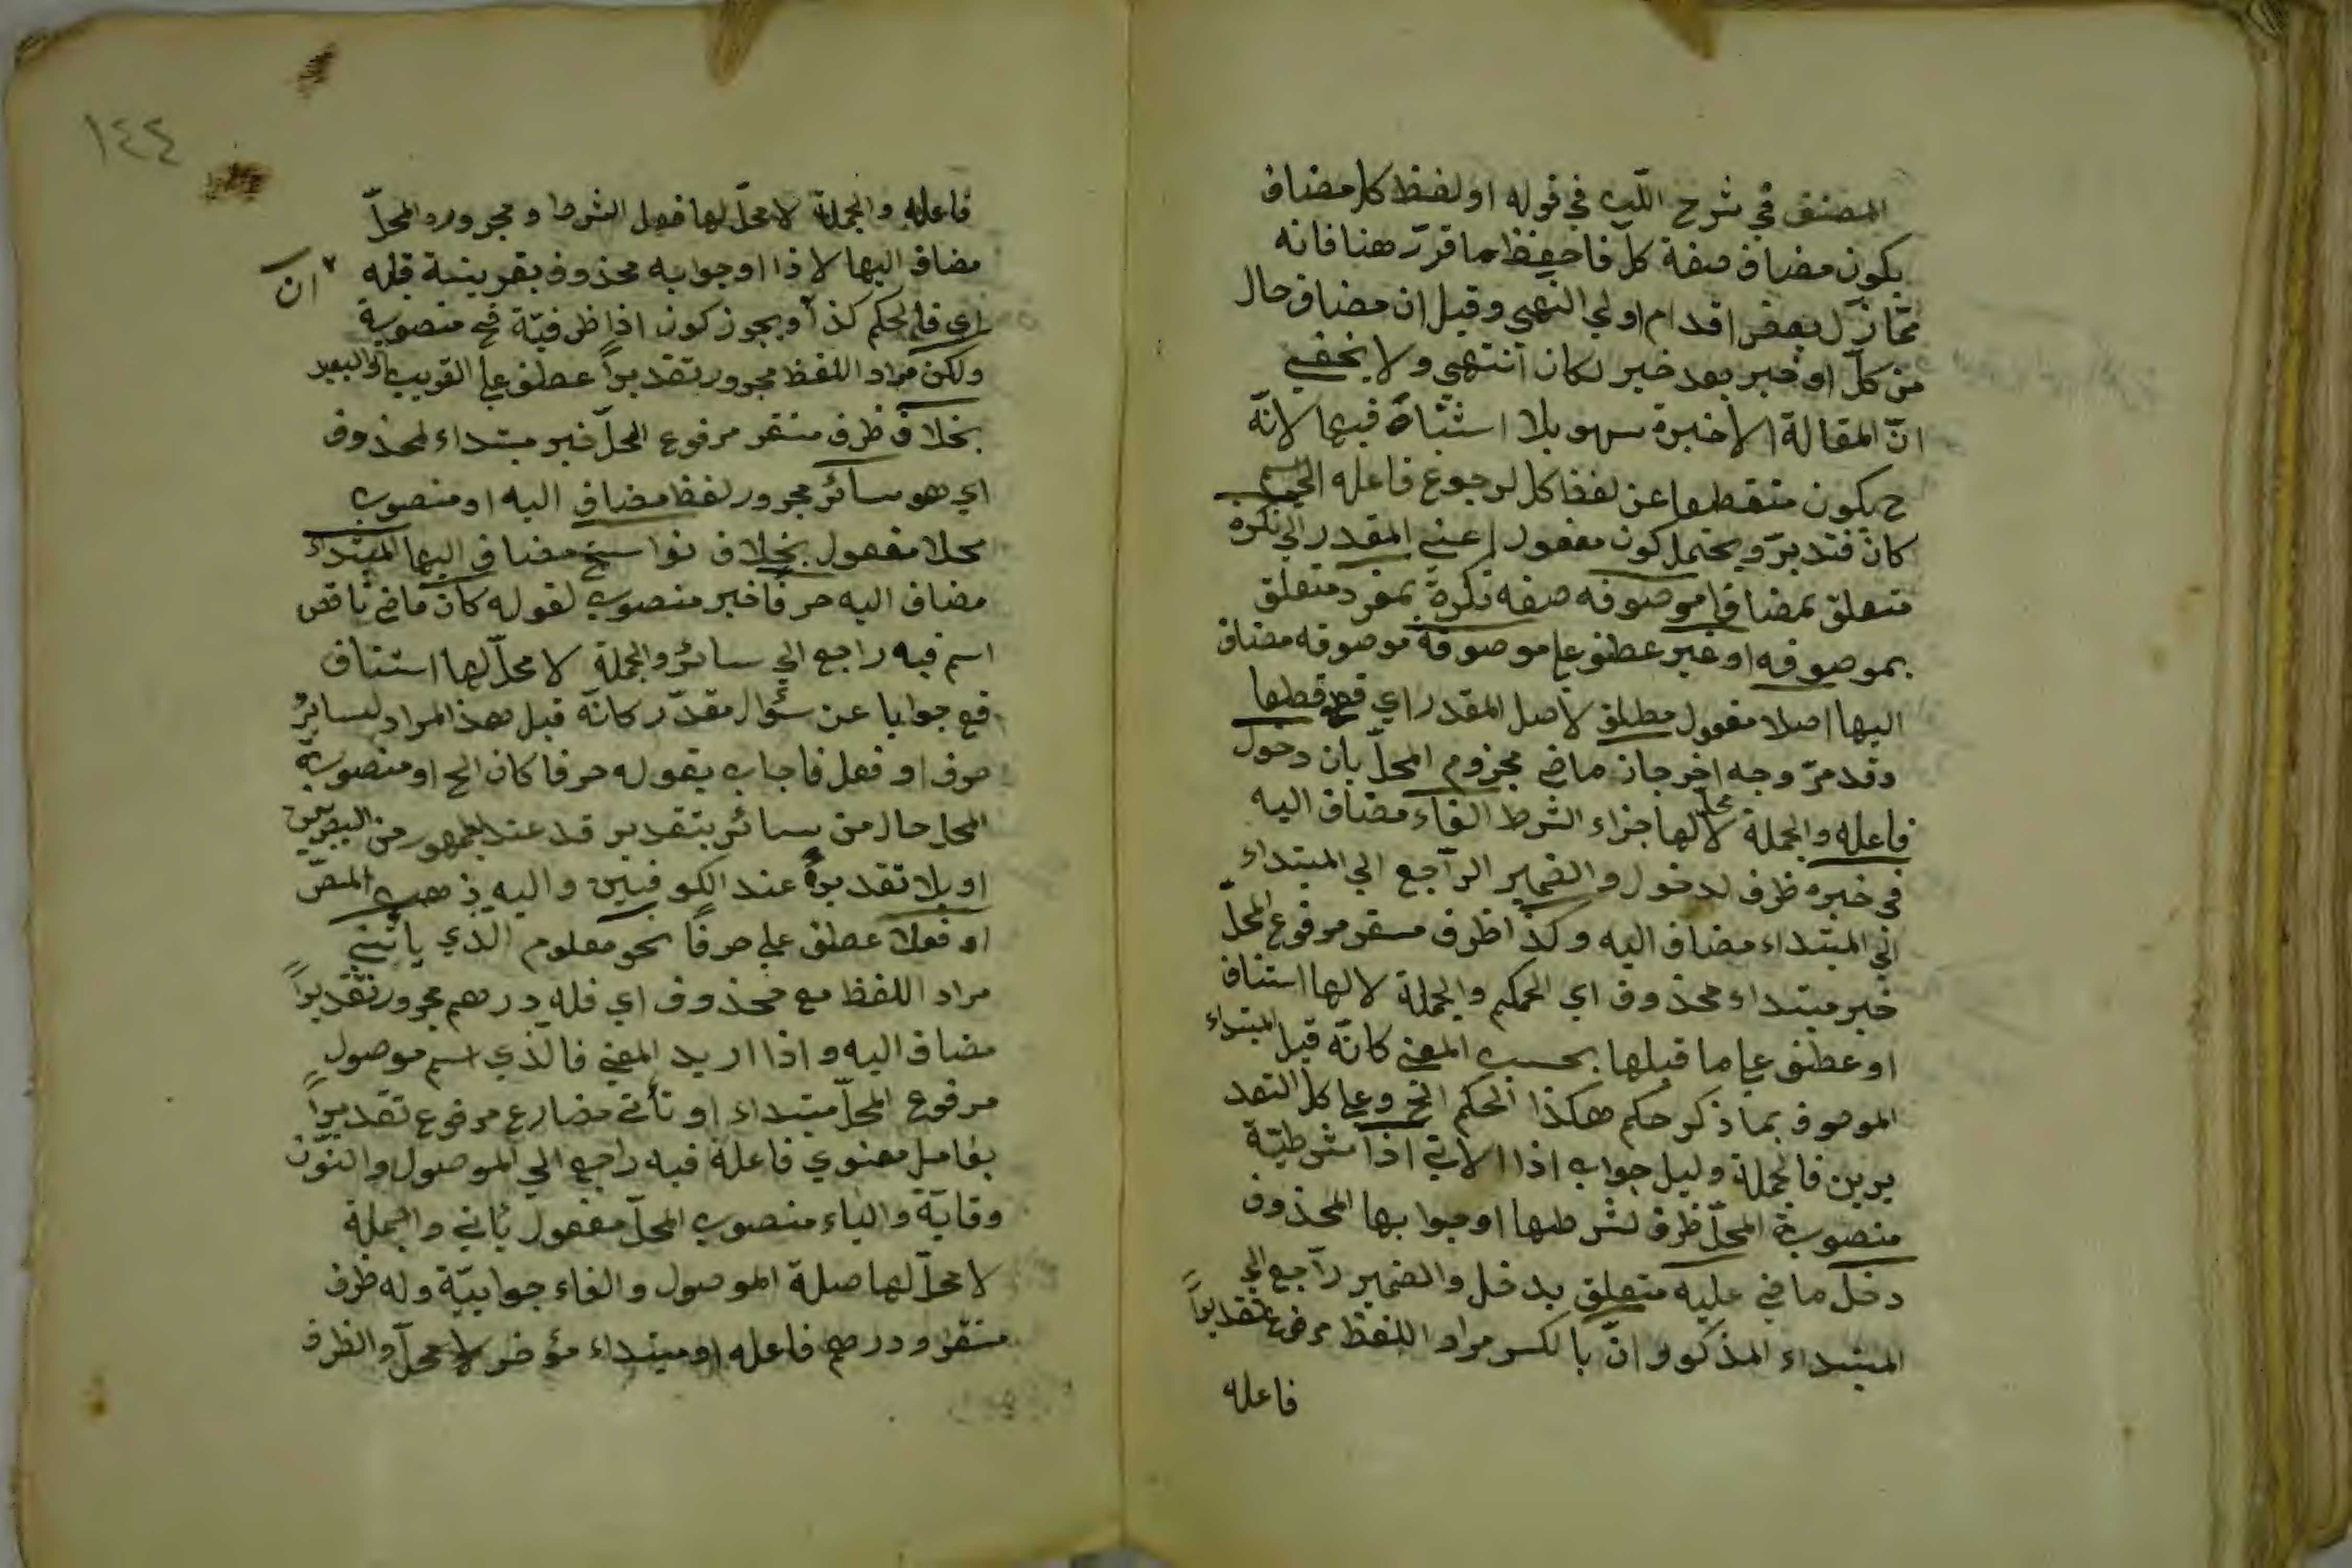 المصنف في شرح اللب في قوله او لفظ كل مضاف
يكون مضاف صفة كل فاحفظ ما قرر هنا فانه
ممّا زلّ بعض اقدام اولي النهى وقيل ان مضاف حال
من كلّ او خبر بعد خبر لكان انتهى ولا يخفى
انّ المقالة الاخيرة سهو بلا اشتباه فيها لانّه
ح يكون منقطعا عن لفظ كل لرجوع فاعله الى اسم
كان فتدبّر ويحتمل كون مفعول اعني المقدر الى نكرة
متعلق بمضاف او موصوفه صفه نكرة بمفرد متعلق
بموصوفه او غير عطف على موصوفة موصوفه مضاف
اليها اصلا مفعول مطلق لاصل المقدر اي قطعا
وقد مرّ وجه اخر جاز ماض مجزوم المحلّ بان دخول
فاعله والجملة لا محلّ لها جزاء الشرط الفاء مضاف اليه
في خبره ظرف لدخول والضمير الراجع الى المبتداء
الى المبتداء مضاف اليه وكذا ظرف مستقر مرفوع المحلّ
خبر مبتداء محذوف اي الحكم والجملة لا لها استناف
او عطف على ما قبلها بحسب المعنى كانّه قيل المبتداء
الموصوف بما ذكر حكم هكذا الحكم الخ وعلى كل التقد
يرين فالجملة دليل جواب اذا الاتي اذا شرطيّة
منصوبة المحلّ ظرف لشرطها او جوابها المحذوف
دخل ماض عليه متعلق بدخل والضمير راجع الى
المبتداء المذكور وانّ بالكسر مراد اللفظ مرفوع تقديراً
فاعله
١٤٤
فاعله والجملة لا محلّ لها فعل الشرط ومجروره المحلّ
مضاف اليها لاذا او جوابه محذوف بقرينة قبله
ان
اي فالحكم كذا او يجوز كون اذا ظرفيّة فح منصوبة
ولكن مراد اللفظ مجرور تقديراً عطف على القريب او البعيد
بخلاف ظرف مستقر مرفوع المحلّ خبر مبتداء محذوف
اي هو سائر مجرور لفظا مضاف اليه او منصوب
محلا مفعول بخلاف نواسخ مضاف اليها المبتداء
مضاف اليه حرفا خبر منصوب لقوله كان ماض ناقص
اسم فيه راجع الى سائر والجملة لا محلّ لها استناف
قع جوابا عن سؤال مقدّر كانّه قيل هذا المراد لسائر
حرف او فعل فاجاب بقوله حرفا كان الخ او منصوبة
المحل حال من سائر بتقدير قد عند الجمهور من البصريين
او بلا تقديره عند الكوفيين واليه ذهب المص
او فعلا عطف على حرفا نحو معلوم الذي ياتيني
مراد اللفظ مع محذوف اي فله درهم مجرور تقديراً
مضاف اليه واذا اريد المعنى فالذي اسم موصول
مرفوع المحلّ مبتداء او تأتي مضارع مرفوع تقديراً
بعامل معنوي فاعله فيه راجع الى الموصول والنون
وقاية والياء منصوب المحلّ مفعول ياتي والجملة
لا محلّ لها صلة الموصول والفاء جوابيّة وله ظرف
مستقر ودرهم فاعله او مبتداء مؤخر لا محلّ والظرف